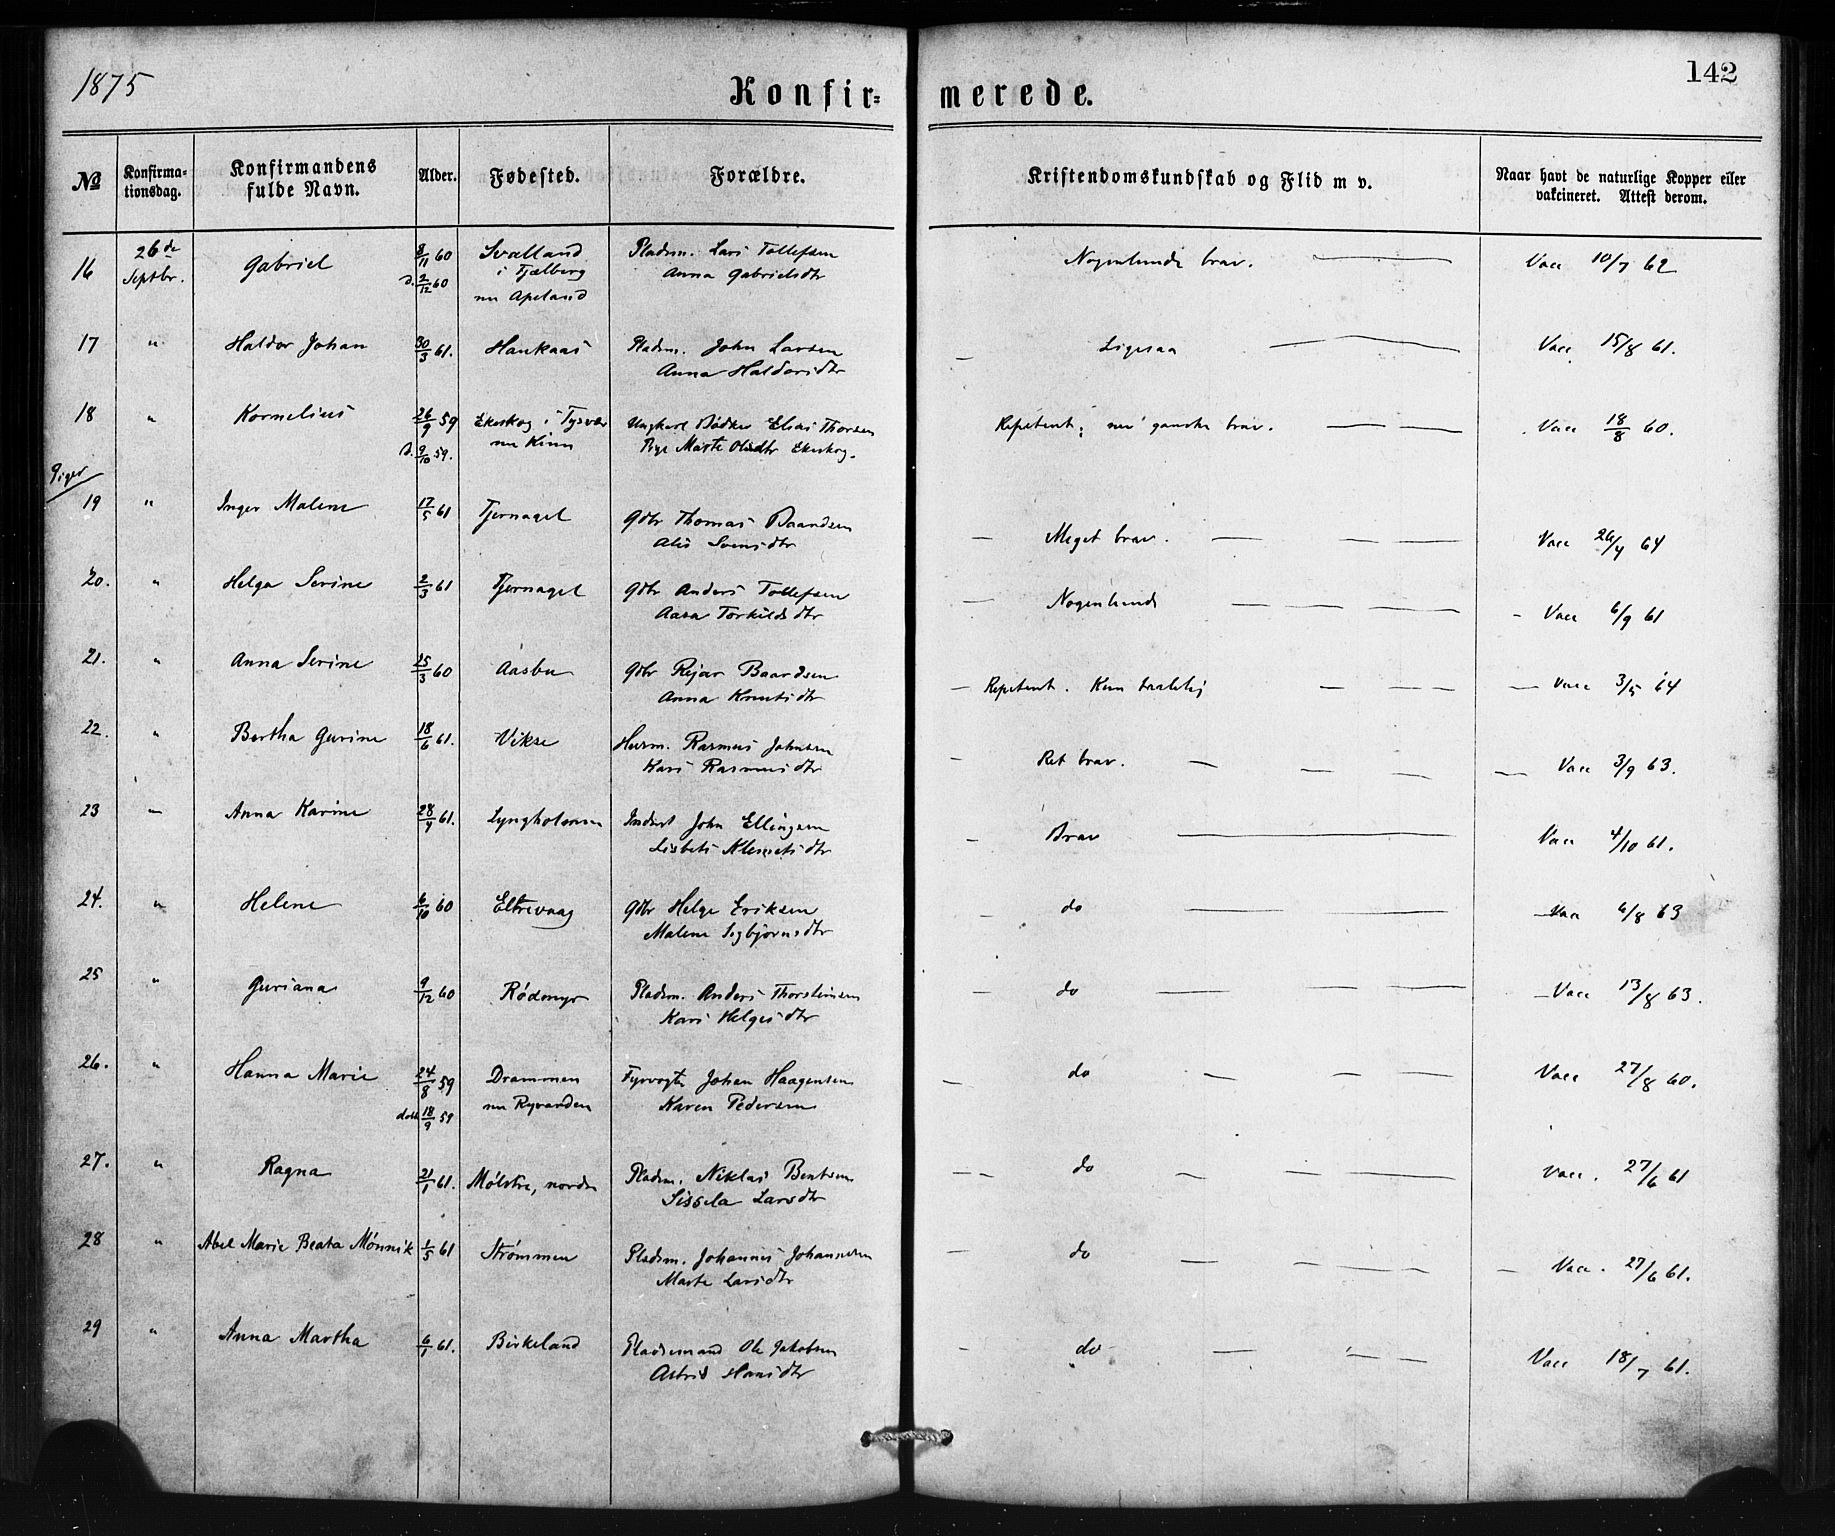 1875
Konfir=
merede.
142
№
Konfirma-
tionsdag.
Konfirmandens
fulde Navn.
Alder.
Fødested.
Forældre.
Kristendomskundskab og Flid m v.
Naar havt de naturlige Kopper eller
vakcineret. Attest derom.
16 26de Septbr. Gabriel 8/11 60 d. 2/12 60 Svalland i Fjelberg nu Apeland Pladsm. Lars Tollefsen Anna Gabrielsdtr Nogenlunde brav. Vacc 10/7 62
17 " Haldor Johan 30/3 61. Haukaas Pladsm. John Larsen Anna Haldorsdtr Ligesaa Vacc 15/8 61.
18 " Kornelius 26/9 59 d. 9/10 59. Ekeskog i Tysvær nu Kinn Ungkarl Bødker Elias Thorsen Pige Marte Olsdtr Ekeskog. Repetent; nu ganske brav. Vacc 18/8 60.
Piger
19 " Inger Malene 17/5 61 Tjernagel Gdbr Thomas Baardsen Alis Svensdtr Meget brav. Vacc 26/4 64
20. " Helga Serine 2/3 61 Tjernagel Gdbr Anders Tollefsen Aasa Torkildsdtr Nogenlunde Vacc 6/9 61
21. " Anna Serine 25/3 60 Aasbu Gdbr Rejar Baardsen Anna Knutsdtr Repetent. Kun taalelig Vacc 3/5 64
22. " Bertha Gurine 18/6 61. Vikse Husm. Rasmus Johnsen Kari Rasmusdtr Ret brav. Vacc 3/9 63.
23 " Anna Karine 28/4 61. Lyngholmen Inderst John Ellingsen Lisbets Klemetsdtr Brav Vacc 4/10 61.
24. " Helene 6/10 60 Eltrevaag Gdbr Helge Eriksen Malene Sigbjørnsdtr do Vacc 6/8 63
25 " Guriana 9/12 60 Rødmyr Pladsm. Anders Thorsteinsen Kari Helgesdtr do Vacc 13/8 63.
26. " Hanna Marie 24/8 59 døbt 18/9 59 Drammen nu Ryvarden Fyrvogter Johan Haagensen Karen Pedersen do Vacc 27/8 60.
27. " Ragna 21/1 61. Mølstre, nordre Pladsm. Niklas Bentsen Sissela Larsdtr do Vacc. 27/6 61
28 " Abel Marie Beata Mønnik 1/5 61 Strømmen Pladsm. Johannes Johannesen Marte Larsdtr do Vacc. 27/6 61.
29 " Anna Martha 6/1 61. Birkeland Pladsmand Ole Jakobsen Astrid Hansdtr do Vacc 18/7 61.